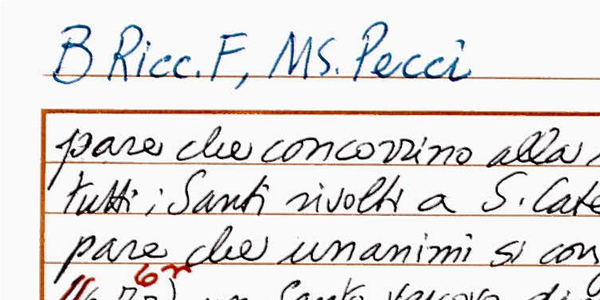 B Ricc. F, MS. Pecci
pare che concorrino alla
tutti i Santi rivolti a S. Cate
pare che unanimi si con
6r
un Santo vescovo di